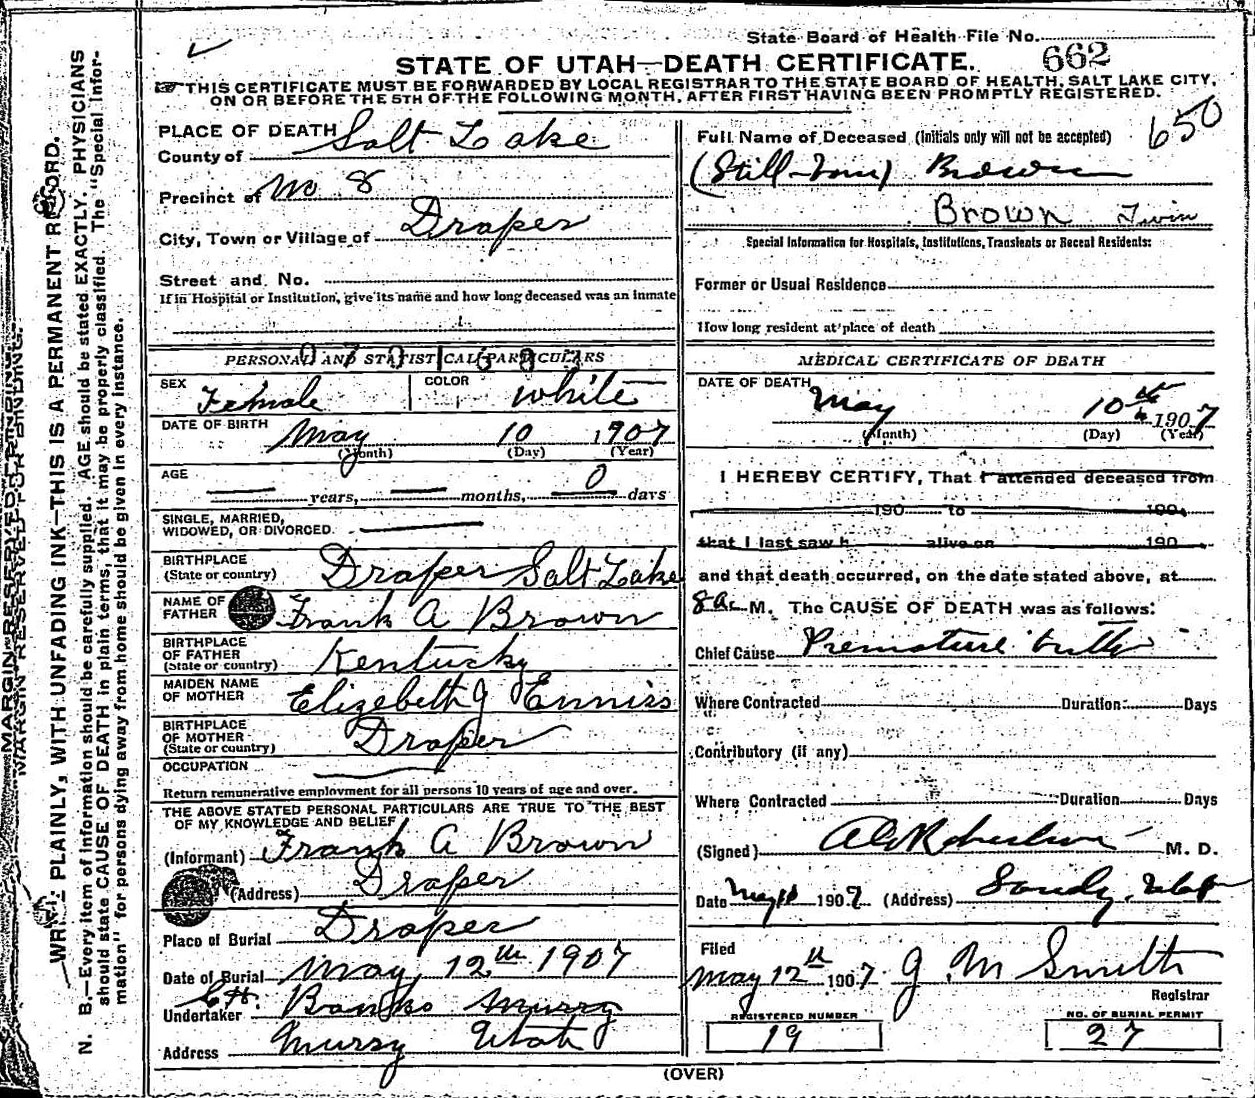 State Board of Health File No. 662
STATE OF UTAH—DEATH CERTIFICATE.
THIS CERTIFICATE MUST BE FORWARDED BY LOCAL REGISTRAR TO THE STATE BOARD OF HEALTH, SALT LAKE CITY,
ON OR BEFORE THE 5TH OF THE FOLLOWING MONTH, AFTER FIRST HAVING BEEN PROMPTLY REGISTERED.
650
PLACE OF DEATH
County of Salt Lake
Precinct of No 8
City, Town or Village of Draper
Street and No.
If in Hospital or Institution, give its name and how long deceased was an inmate
PERSONAL AND STATISTICAL PARTICULARS
SEX Female COLOR white
DATE OF BIRTH May 10 1907
(Month) (Day) (Year)
AGE
years, months, 0 days
SINGLE, MARRIED,
WIDOWED, OR DIVORCED
BIRTHPLACE
(State or country) Draper Salt Lake
NAME OF
FATHER Frank A Brown
BIRTHPLACE
OF FATHER
(State or country) Kentucky
MAIDEN NAME
OF MOTHER Elizabeth J Enniss
BIRTHPLACE
OF MOTHER
(State or country) Draper
OCCUPATION
Return remunerative employment for all persons 10 years of age and over.
THE ABOVE STATED PERSONAL PARTICULARS ARE TRUE TO THE BEST
OF MY KNOWLEDGE AND BELIEF
(Informant) Frank A Brown
(Address) Draper
Place of Burial Draper
Date of Burial May 12th 1907
Undertaker Banks Murry
Address Murry Utah
Full Name of Deceased (initials only will not be accepted)
(Still-born) Brown
Brown Twin
Special Information for Hospitals, Institutions, Transients or Recent Residents:
Former or Usual Residence
How long resident at place of death
MEDICAL CERTIFICATE OF DEATH
DATE OF DEATH
May 10th 1907
(Month) (Day) (Year)
I HEREBY CERTIFY, That I attended deceased from
190 to 190
that I last saw h alive on 190
and that death occurred, on the date stated above, at
8 A. M. The CAUSE OF DEATH was as follows:
Chief Cause Premature birth
Where Contracted Duration Days
Contributory (if any)
Where Contracted Duration Days
(Signed) Robertson M. D.
Date May 10 1907 (Address) Sandy, Utah
Filed
May 12th 1907 J M Smith
Registrar
REGISTERED NUMBER
19
NO. OF BURIAL PERMIT
27
(OVER)
MARGIN RESERVED FOR BINDING.
WRITE PLAINLY, WITH UNFADING INK—THIS IS A PERMANENT RECORD.
N. B.—Every item of information should be carefully supplied. AGE should be stated EXACTLY. PHYSICIANS
should state CAUSE OF DEATH in plain terms, that it may be properly classified. The "Special Infor-
mation" for persons dying away from home should be given in every instance.